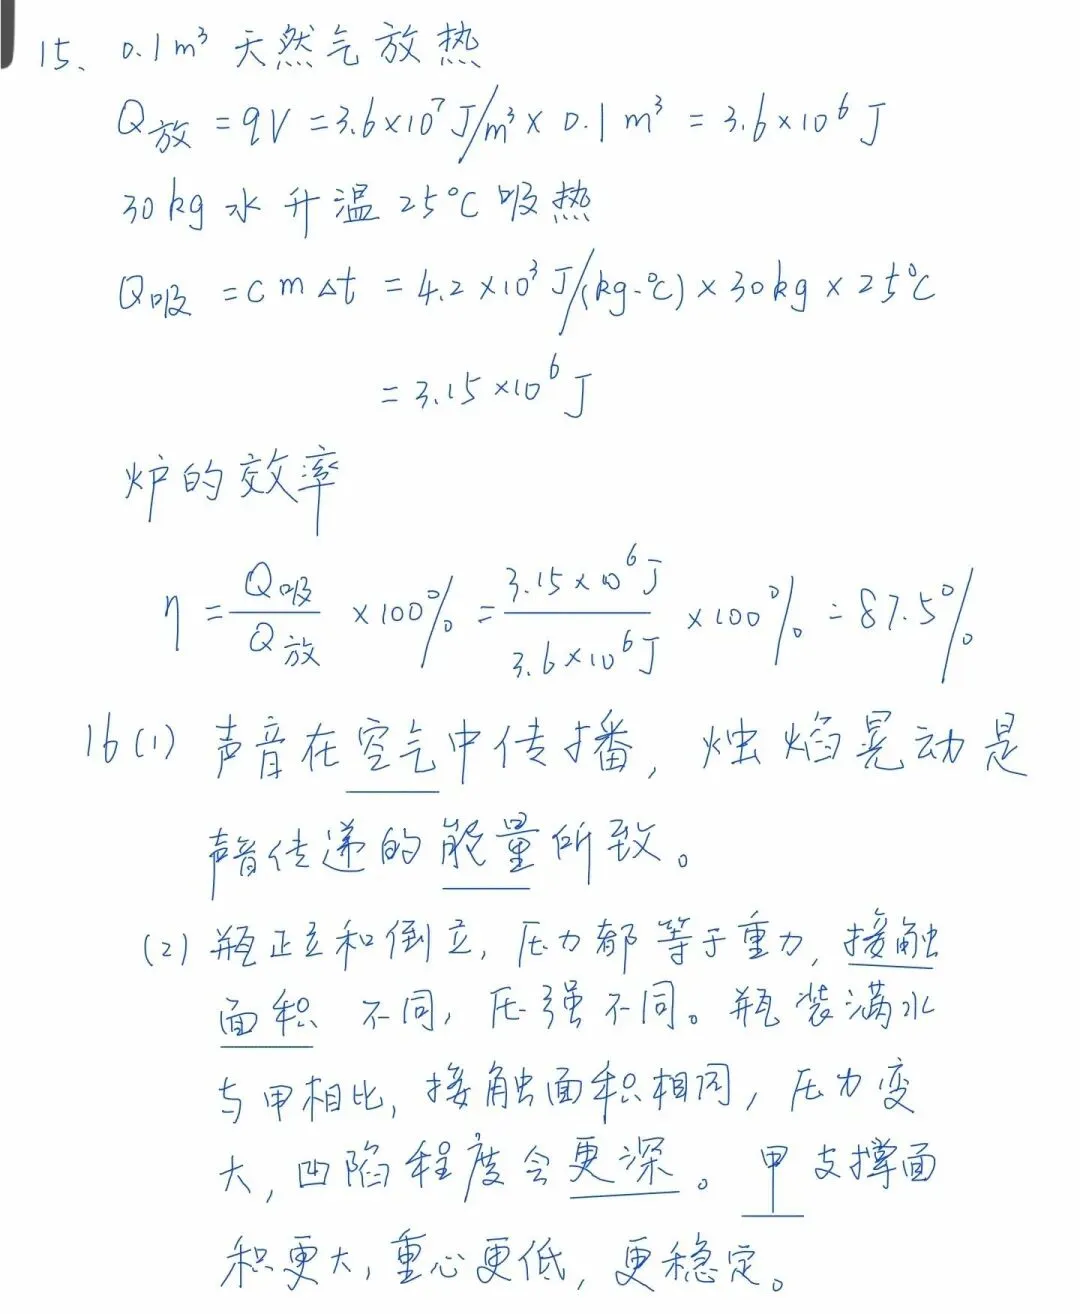 15、0.1m³ 天然气放热
Q放 = qV = 3.6×10⁷J/m³ × 0.1m³ = 3.6×10⁶J
30kg水升温25℃吸热
Q吸 = cmΔt = 4.2×10³J/(kg·℃)×30kg×25℃
= 3.15×10⁶J
炉的效率
η = Q吸/Q放 ×100% = 3.15×10⁶J/3.6×10⁶J ×100% = 87.5%
16(1) 声音在空气中传播，烛焰晃动是
声音传递的能量所致。
(2) 瓶正立和倒立，压力都等于重力，接触
面积 不同，压强不同。瓶装满水
与甲相比，接触面积相同，压力变
大，凹陷程度会更深。甲支撑面
积更大，重心更低，更稳定。